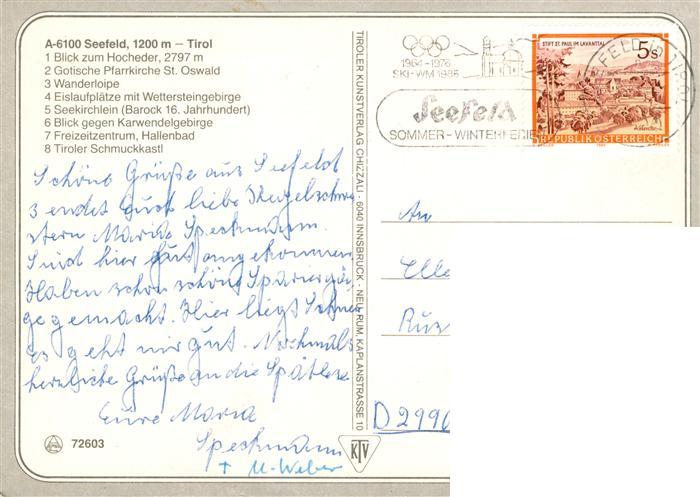 A-6100 Seefeld, 1200 m – Tirol
1 Blick zum Hocheder, 2797 m
2 Gotische Pfarrkirche St. Oswald
3 Wanderloipe
4 Eislaufplätze mit Wettersteingebirge
5 Seekirchlein (Barock 16. Jahrhundert)
6 Blick gegen Karwendelgebirge
7 Freizeitzentrum, Hallenbad
8 Tiroler Schmuckkastl
Schöne Grüße aus Seefeld
sendet Euch liebe Kegelschwe
stern Maria Speckmann.
Sind hier gut angekommen
Haben schon schöne Spaziergän
ge gemacht. Hier liegt Schnee
es geht mir gut. Nochmals
herzliche Grüße an die
Eure Maria
Speckmann
+ U. Weber
72603
TIROLER KUNSTVERLAG CHIZZALI - 6040 INNSBRUCK - NEU RUM, KAPLANSTRASSE 10
KTV
1964-1976
SKI-WM 1985
Seefeld
SOMMER-WINTERFERIEN
STIFT ST. PAUL IM LAVANTTAL
5 S
REPUBLIK ÖSTERREICH
An
D 2990